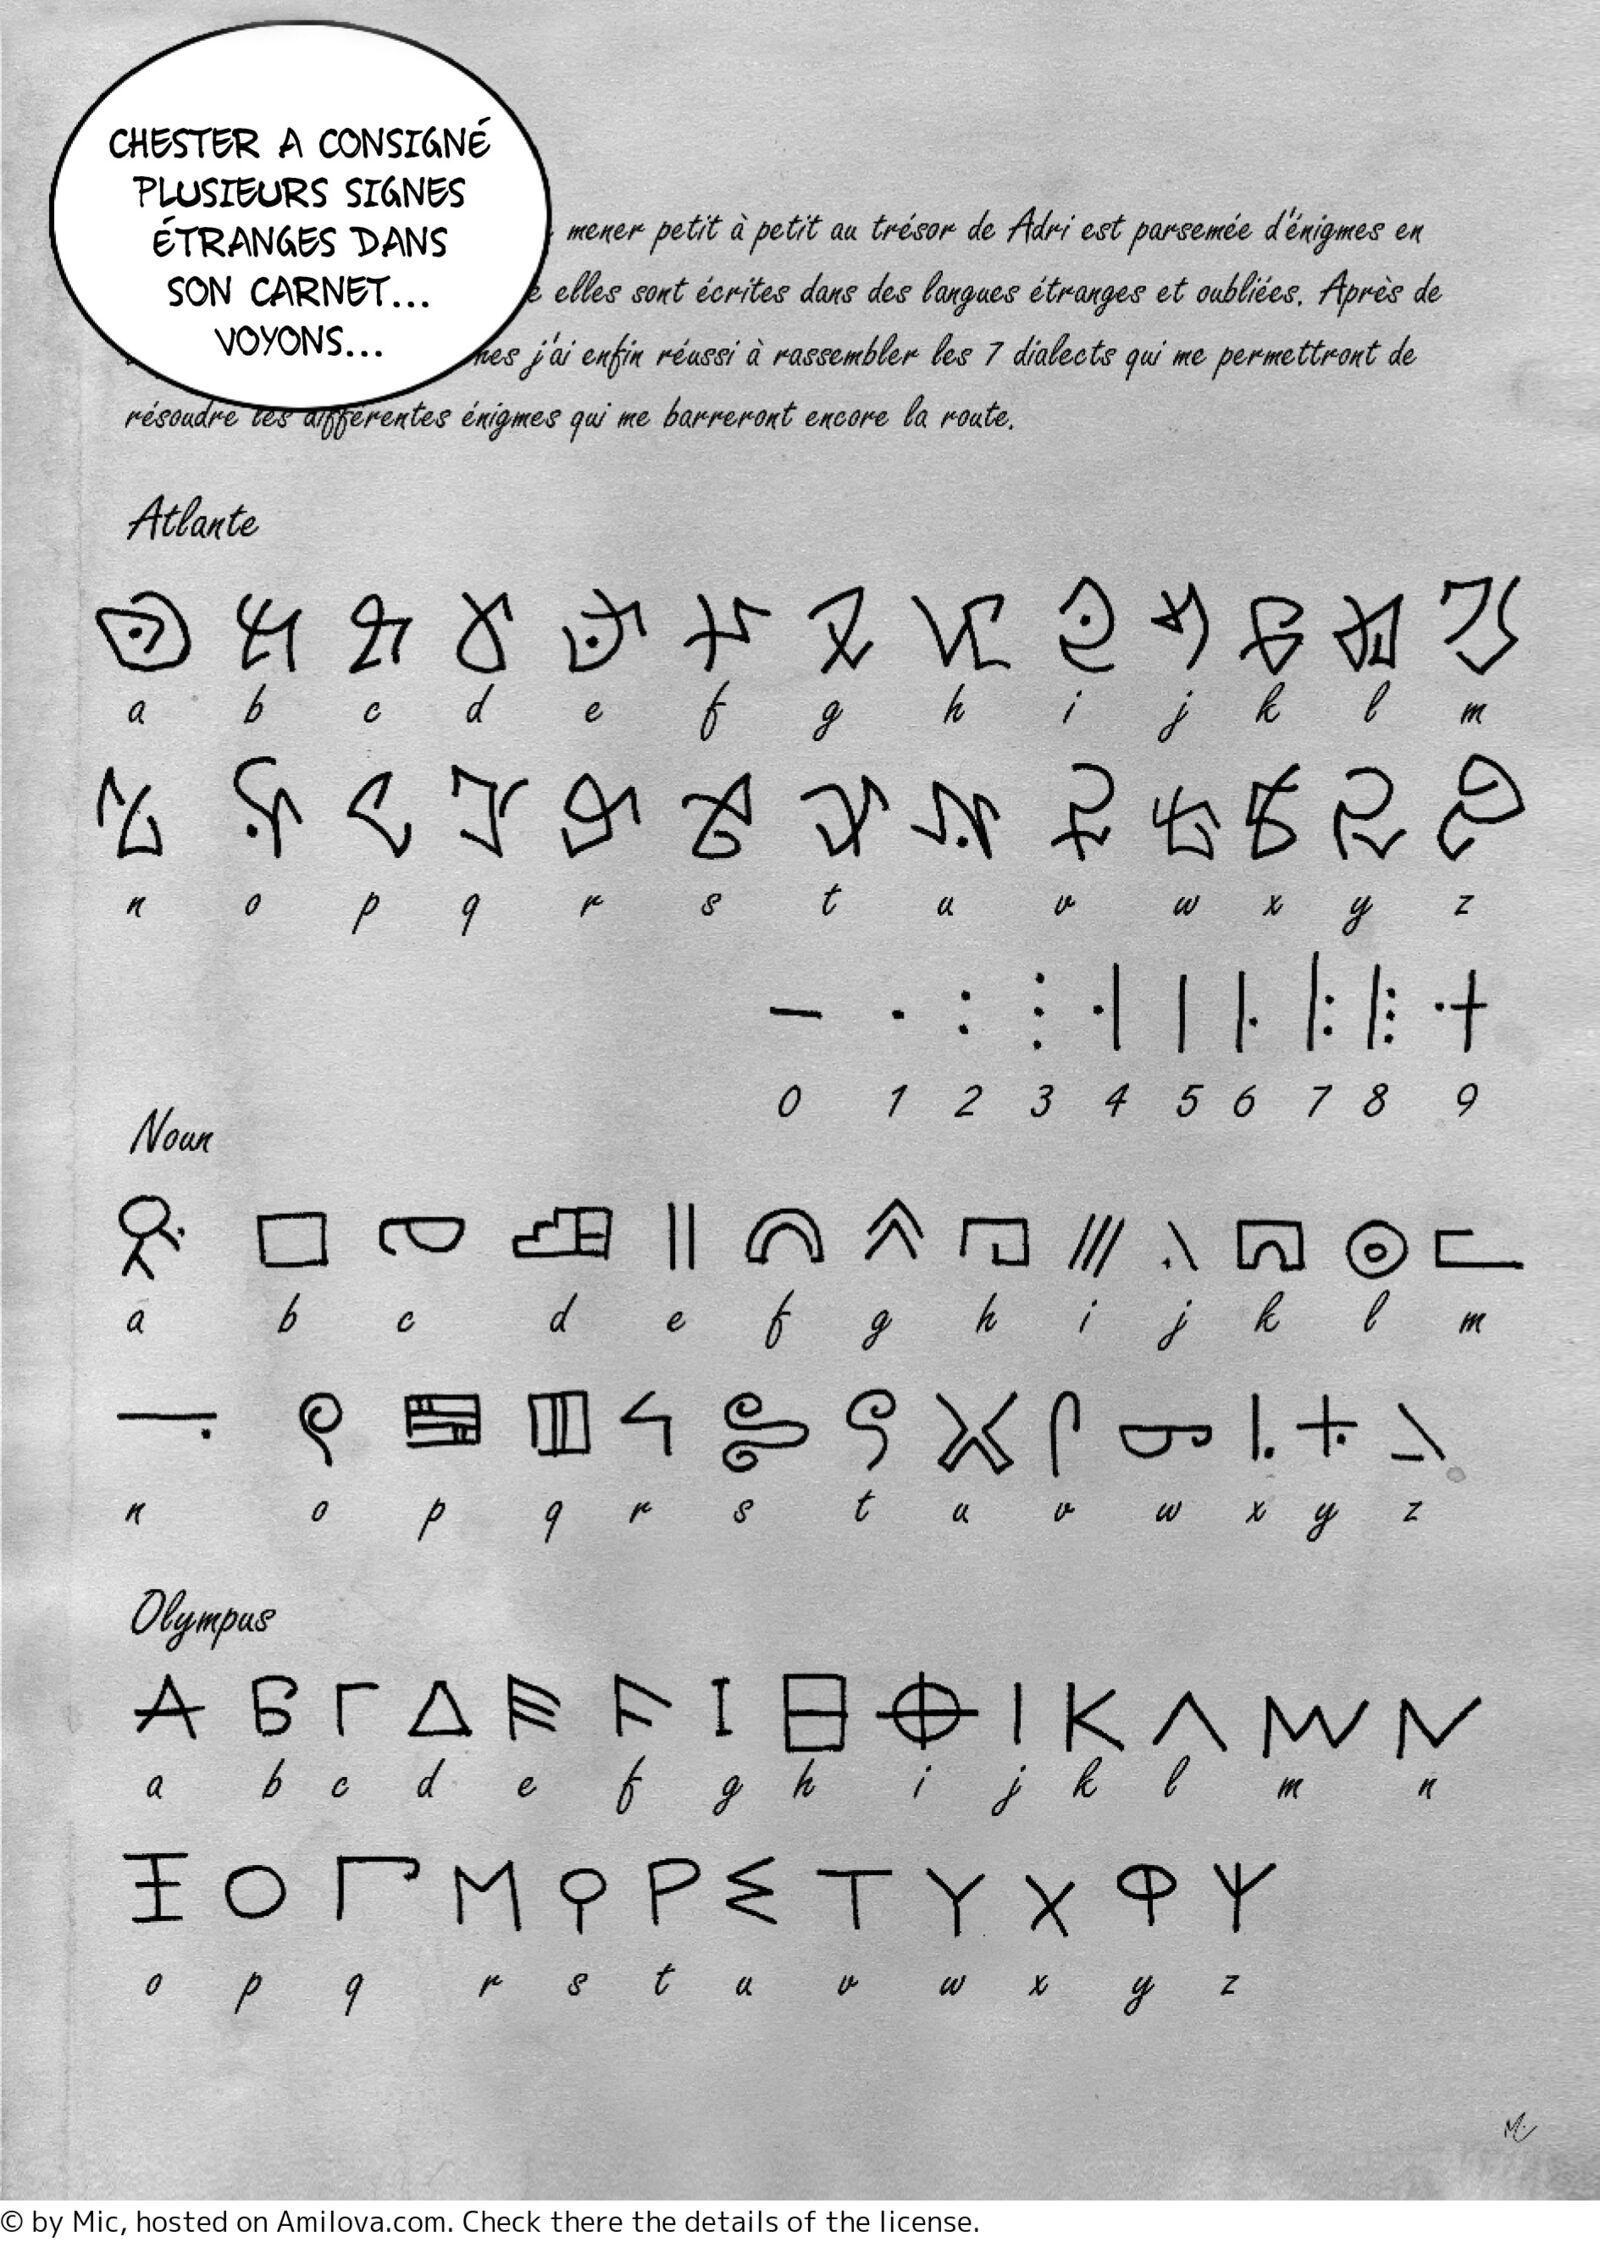 CHESTER A CONSIGNÉ
PLUSIEURS SIGNES
ÉTRANGES DANS
SON CARNET...
VOYONS...
mener petit à petit au trésor de Adri est parsemée d'énigmes en
elles sont écrites dans des langues étranges et oubliées. Après de
j'ai enfin réussi à rassembler les 7 dialects qui me permettront de
résoudre les différentes énigmes qui me barreront encore la route.
Atlante
a b c d e f g h i j k l m
n o p q r s t u v w x y z
0 1 2 3 4 5 6 7 8 9
Noun
a b c d e f g h i j k l m
n o p q r s t u v w x y z
Olympus
a b c d e f g h i j k l m n
o p q r s t u v w x y z
© by Mic, hosted on Amilova.com. Check there the details of the license.